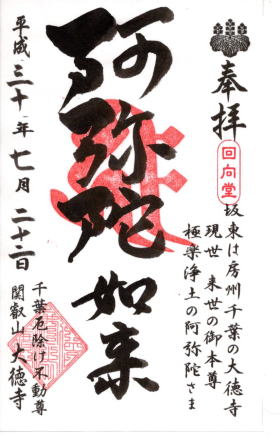 奉拝
回向堂
坂東は房州千葉の大徳寺
現世 来世の御本尊
極楽浄土の阿弥陀さま
阿弥陀如来
平成三十年七月二十二日
千葉厄除け不動尊
関叡山 大徳寺